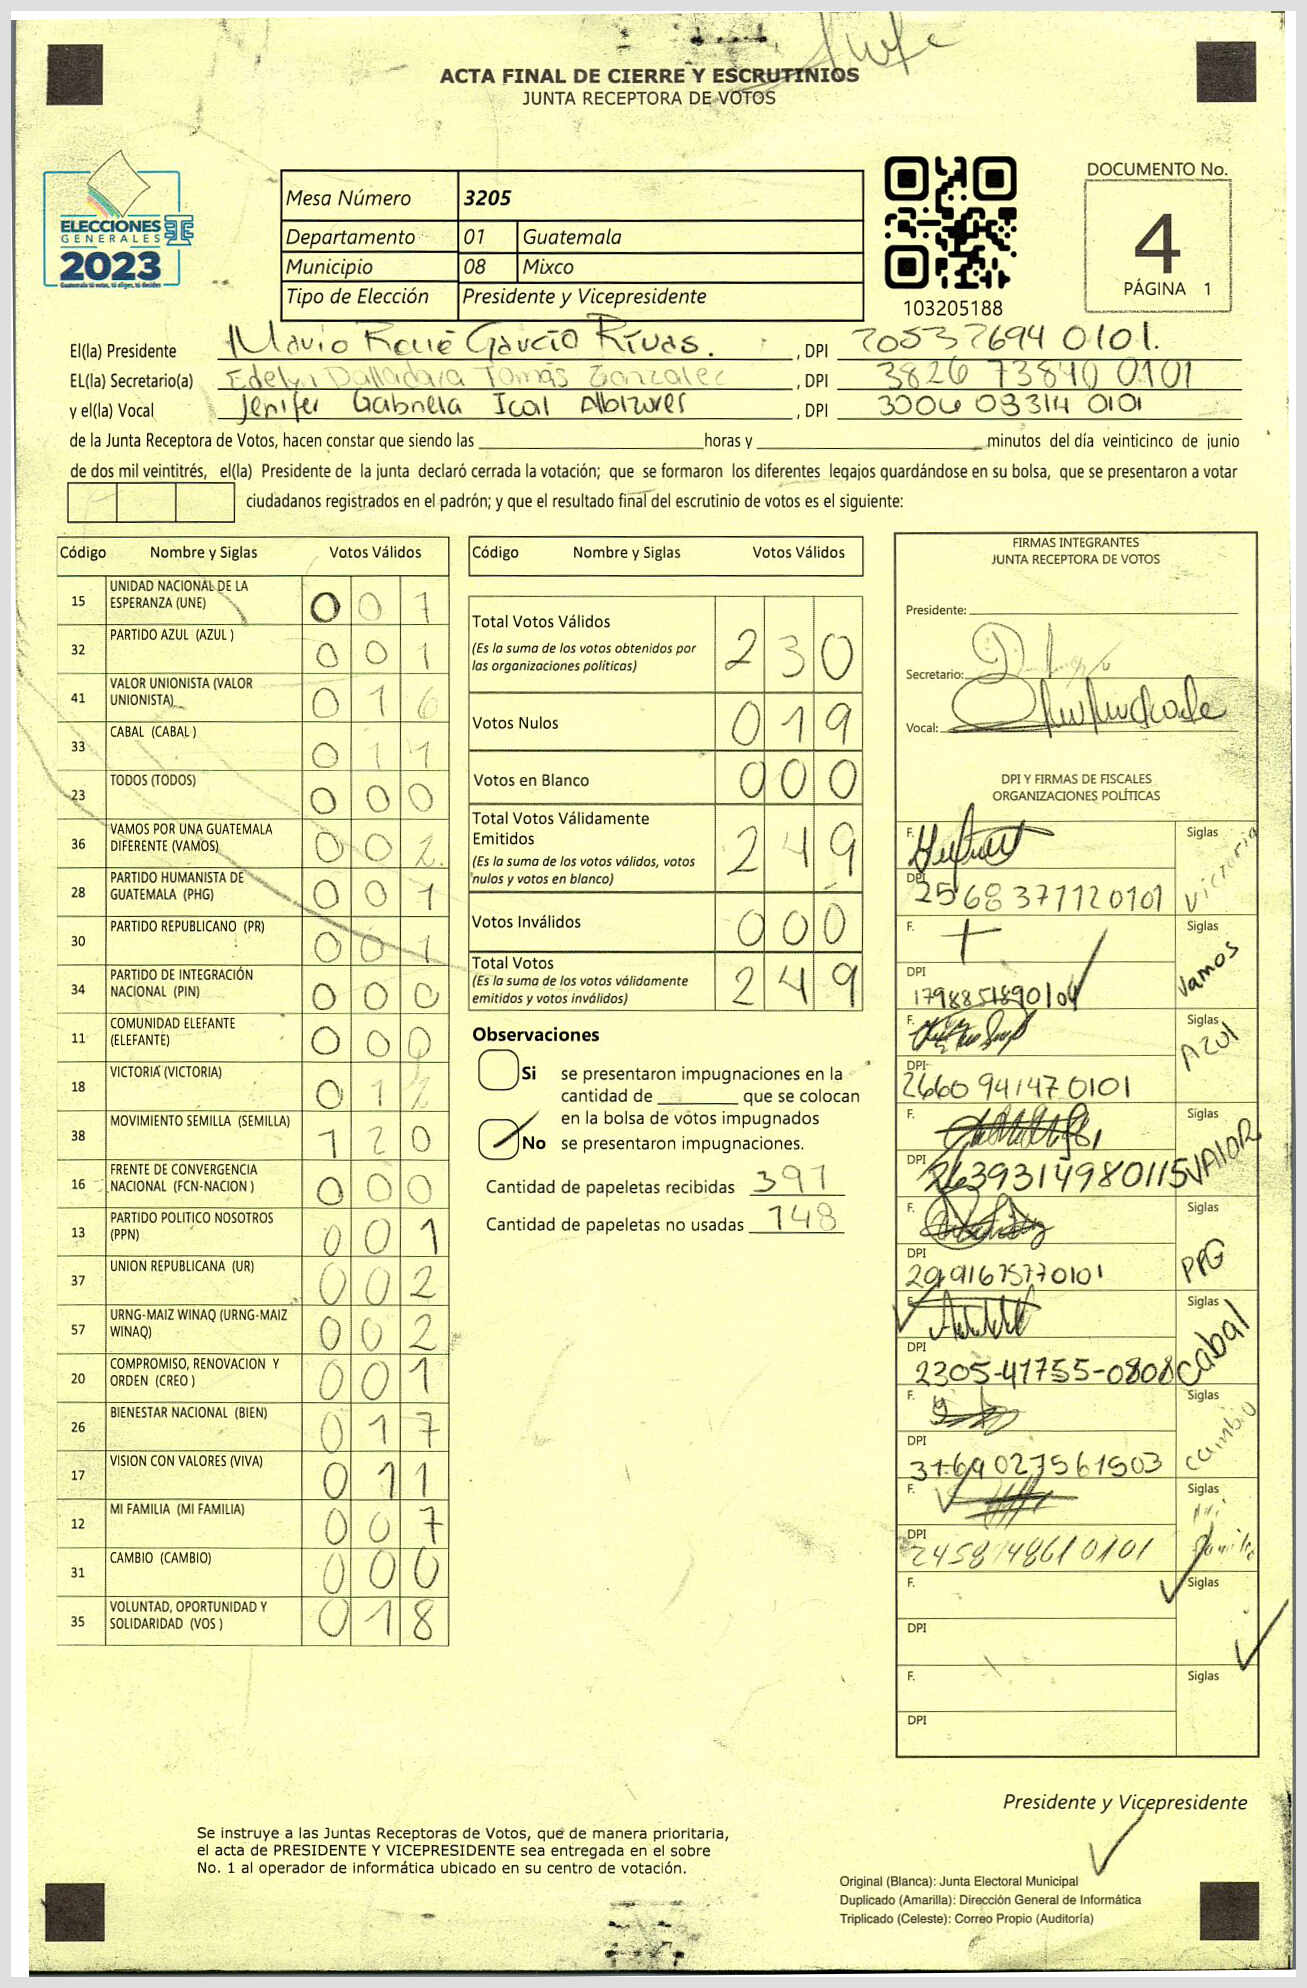 ACTA FINAL DE CIERRE Y ESCRUTINIOS
JUNTA RECEPTORA DE VOTOS
ELECCIONES
GENERALES
2023
Guatemala tú votas, tú eliges, tú decides
Mesa Número 3205
Departamento 01 Guatemala
Municipio 08 Mixco
Tipo de Elección Presidente y Vicepresidente
103205188
DOCUMENTO No.
4
PÁGINA 1
El(la) Presidente Mario René García Rivas. , DPI 20537694 0101.
EL(la) Secretario(a) Edelyn Dalladara Tomás Gonzalez , DPI 3826 73840 0101
y el(la) Vocal Jenifer Gabriela Ical Albizures , DPI 3006 03314 0101
de la Junta Receptora de Votos, hacen constar que siendo las horas y minutos del día veinticinco de junio
de dos mil veintitrés, el(la) Presidente de la junta declaró cerrada la votación; que se formaron los diferentes legajos guardándose en su bolsa, que se presentaron a votar
ciudadanos registrados en el padrón; y que el resultado final del escrutinio de votos es el siguiente:
Código Nombre y Siglas Votos Válidos
15 UNIDAD NACIONAL DE LA
ESPERANZA (UNE) 0 0 7
32 PARTIDO AZUL (AZUL ) 0 0 1
41 VALOR UNIONISTA (VALOR
UNIONISTA) 0 1 6
33 CABAL (CABAL ) 0 1 1
23 TODOS (TODOS) 0 0 0
36 VAMOS POR UNA GUATEMALA
DIFERENTE (VAMOS) 0 0 2
28 PARTIDO HUMANISTA DE
GUATEMALA (PHG) 0 0 1
30 PARTIDO REPUBLICANO (PR) 0 0 1
34 PARTIDO DE INTEGRACIÓN
NACIONAL (PIN) 0 0 0
11 COMUNIDAD ELEFANTE
(ELEFANTE) 0 0 0
18 VICTORIA (VICTORIA) 0 1 2
38 MOVIMIENTO SEMILLA (SEMILLA) 1 2 0
16 FRENTE DE CONVERGENCIA
NACIONAL (FCN-NACION ) 0 0 0
13 PARTIDO POLITICO NOSOTROS
(PPN) 0 0 1
37 UNION REPUBLICANA (UR) 0 0 2
57 URNG-MAIZ WINAQ (URNG-MAIZ
WINAQ) 0 0 2
20 COMPROMISO, RENOVACION Y
ORDEN (CREO ) 0 0 1
26 BIENESTAR NACIONAL (BIEN) 0 1 7
17 VISION CON VALORES (VIVA) 0 1 1
12 MI FAMILIA (MI FAMILIA) 0 0 7
31 CAMBIO (CAMBIO) 0 0 0
35 VOLUNTAD, OPORTUNIDAD Y
SOLIDARIDAD (VOS ) 0 1 8
Código Nombre y Siglas Votos Válidos
Total Votos Válidos
(Es la suma de los votos obtenidos por
las organizaciones políticas) 2 3 0
Votos Nulos 0 1 9
Votos en Blanco 0 0 0
Total Votos Válidamente
Emitidos
(Es la suma de los votos válidos, votos
nulos y votos en blanco) 2 4 9
Votos Inválidos 0 0 0
Total Votos
(Es la suma de los votos válidamente
emitidos y votos inválidos) 2 4 9
Observaciones
Si se presentaron impugnaciones en la
cantidad de que se colocan
en la bolsa de votos impugnados
No se presentaron impugnaciones.
Cantidad de papeletas recibidas 397
Cantidad de papeletas no usadas 148
FIRMAS INTEGRANTES
JUNTA RECEPTORA DE VOTOS
Presidente:
Secretario:
Vocal:
DPI Y FIRMAS DE FISCALES
ORGANIZACIONES POLÍTICAS
F. Siglas
DPI 2568 37112 0101 Victoria
F. Siglas
DPI 1798851890104 Vamos
F. Siglas
DPI 2660 94147 0101 Azul
F. Siglas
DPI 2639314980115 VALOR
F. Siglas
DPI 2991675770101 PPG
F. Siglas
DPI 2305-41755-0808 Cabal
F. Siglas
DPI 3169027561503 Cambio
F. Siglas
DPI 2458748610101 Mi Familia
F. Siglas
DPI
F. Siglas
DPI
Presidente y Vicepresidente
Se instruye a las Juntas Receptoras de Votos, que de manera prioritaria,
el acta de PRESIDENTE Y VICEPRESIDENTE sea entregada en el sobre
No. 1 al operador de informática ubicado en su centro de votación.
Original (Blanca): Junta Electoral Municipal
Duplicado (Amarilla): Dirección General de Informática
Triplicado (Celeste): Correo Propio (Auditoría)